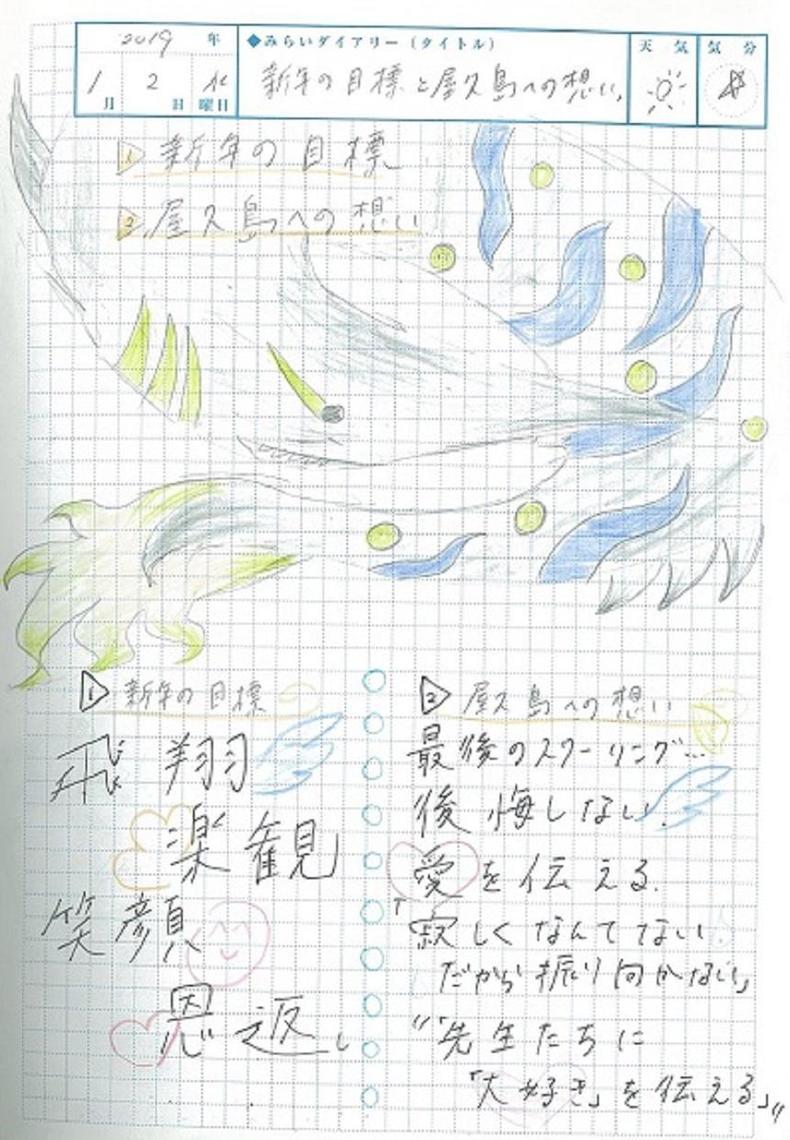 2019 年
1月 2日 水曜日
◆みらいダイアリー（タイトル）
新年の目標と屋久島への想い。
天気
気分
1 新年の目標
2 屋久島への想い
1 新年の目標
飛翔
楽観
笑顔
恩返し
2 屋久島への想い
最後のスクーリング…
後悔しない。
愛を伝える。
「寂しくなんてない
だから振り向かない」
“先生たちに
「大好き」を伝える」”